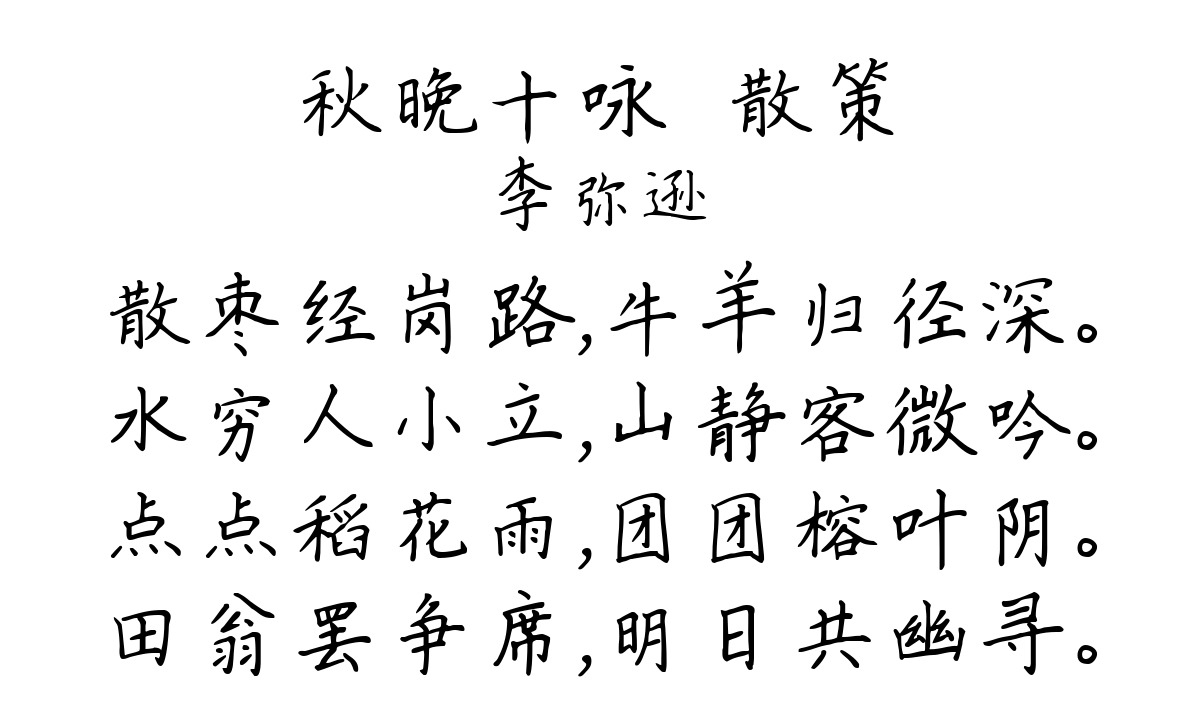 秋晚十咏 散策
李弥逊
散枣经岗路,牛羊归径深。
水穷人小立,山静客微吟。
点点稻花雨,团团榕叶阴。
田翁罢争席,明日共幽寻。